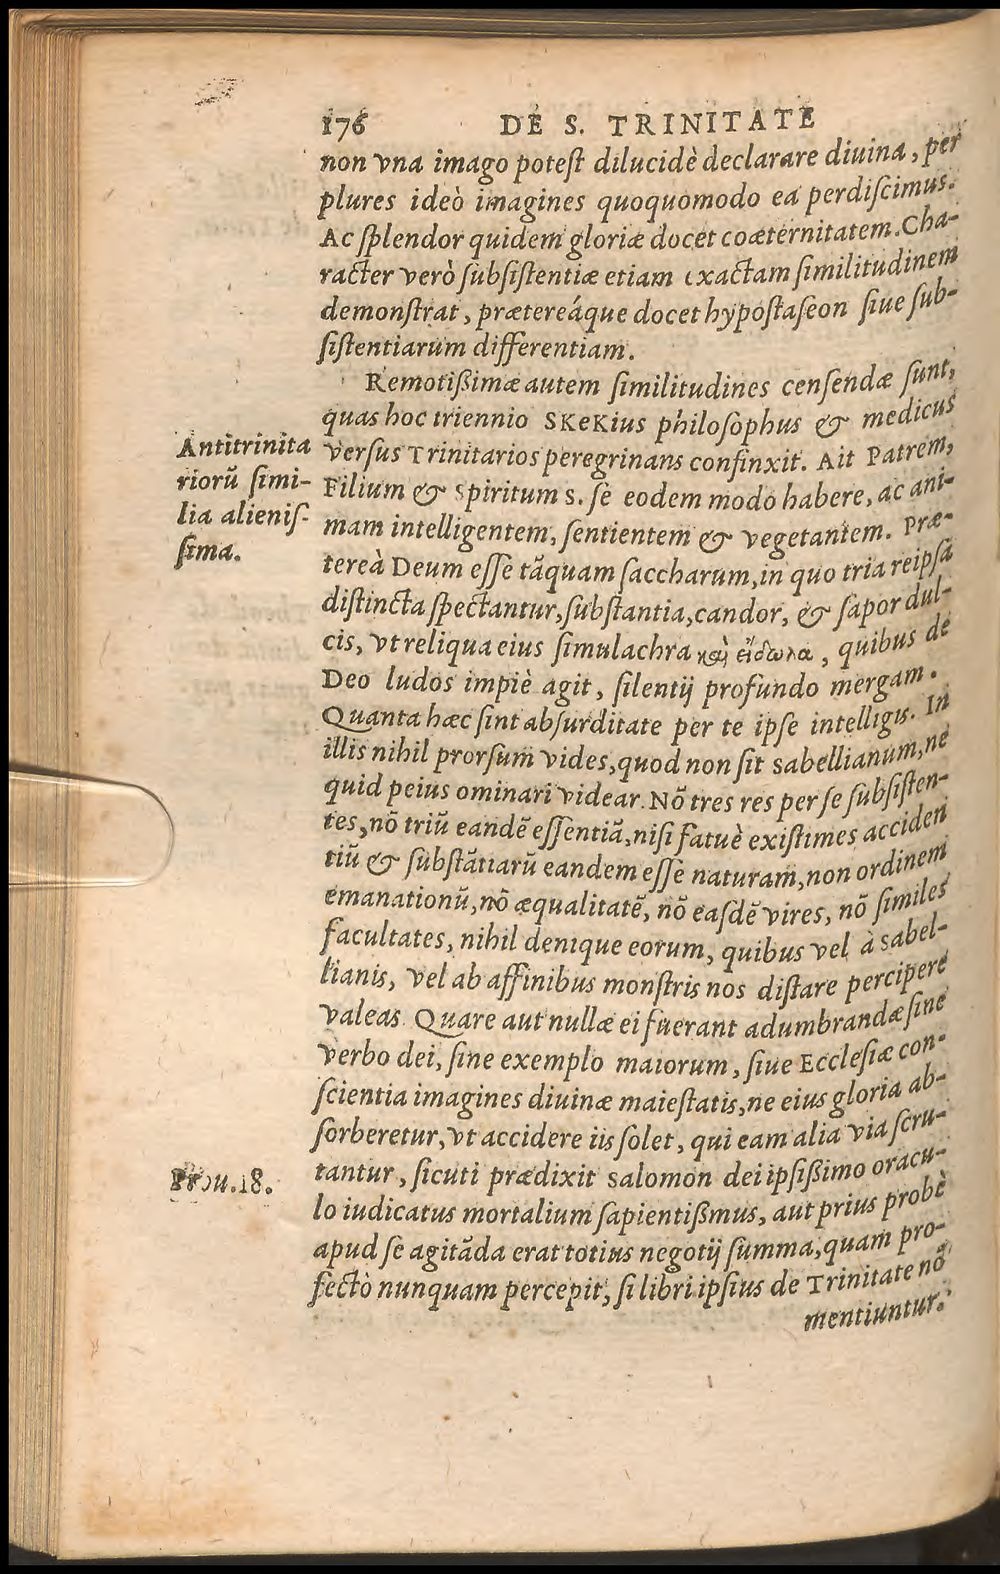 176 DE S. TRINITATE
non vna imago poteſt dilucidè declarare diuina, per
plures ideò imagines quoquomodo ea perdiſcimus.
Ac ſplendor quidem gloriæ docet coæternitatem. Cha-
racter verò ſubſiſtentiæ etiam exactam ſimilitudinem
demonſtrat, prætereáque docet hypoſtaſeon ſiue ſub-
ſiſtentiarum differentiam.
Remotißimæ autem ſimilitudines cenſendæ ſunt,
quas hoc triennio SKeKius philoſophus & medicus
verſus Trinitarios peregrinans confinxit. Ait Patrem,
Filium & Spiritum S. ſe eodem modo habere, ac ani-
mam intelligentem, ſentientem & vegetantem. Præ-
tereà Deum eſſe tãquam ſaccharum, in quo tria reipſa
diſtincta ſpectantur, ſubſtantia, candor, & ſapor dul-
cis, vt reliqua eius ſimulachra καὶ εἴδωλα, quibus de
Deo ludos impiè agit, ſilentij profundo mergam.
Quanta hæc ſint abſurditate per te ipſe intelligis. In
illis nihil prorſum vides, quod non ſit Sabellianum, ne
quid peius ominari videar. Nõ tres res per ſe ſubſiſten-
tes, nõ triũ eandẽ eſſentiã, niſi fatuè exiſtimes acciden
tiũ & ſubſtãtiarũ eandem eſſe naturam, non ordinem
emanationũ, nõ æqualitatẽ, nõ eaſdẽ vires, nõ ſimiles
facultates, nihil denique eorum, quibus vel à Sabel-
lianis, vel ab affinibus monſtris nos diſtare percipere
valeas. Quare aut nullæ ei fuerant adumbrandæ ſine
verbo dei, ſine exemplo maiorum, ſiue Eccleſiæ con-
ſcientia imagines diuinæ maieſtatis, ne eius gloria ab-
ſorberetur, vt accidere iis ſolet, qui eam alia via ſcru-
tantur, ſicuti prædixit Salomon dei ipſiſſimo oracu-
lo iudicatus mortalium ſapientißmus, aut prius probè
apud ſe agitãda erat totius negotij ſumma, quam pro-
fectò nunquam percepit, ſi libri ipſius de Trinitate nõ
mentiuntur.
Antitrinita
riorũ ſimi-
lia alieniſ-
ſima.
Prou.18.